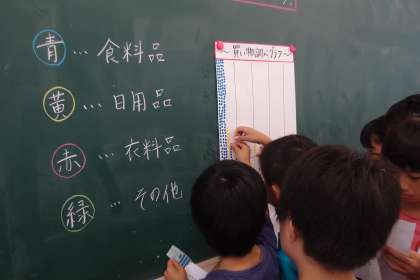 青…食料品
黄…日用品
赤…衣料品
緑…その他
～買い物調べグラフ～